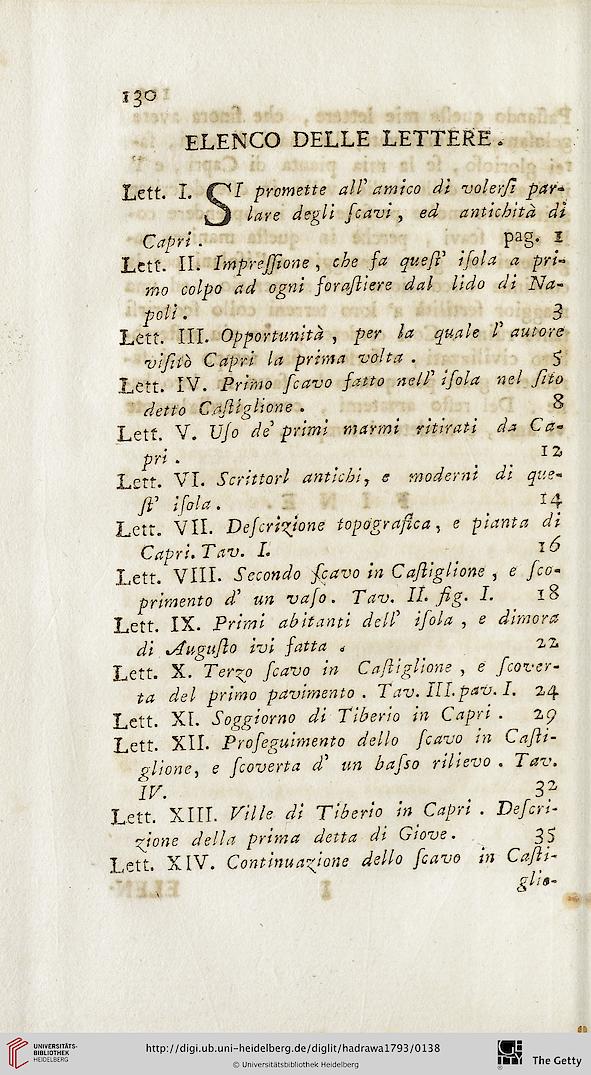 130
ELENCO DELLE LETTERE.
Lett. I. SI promette all' amico di volerſi par-
lare degli ſcavi, ed antichità di
Capri. pag. 1
Lett. II. Impreſſione, che fa queſt' iſola a pri-
mo colpo ad ogni foraſtiere dal lido di Na-
poli. 3
Lett. III. Opportunità, per la quale l' autore
viſitò Capri la prima volta. 5
Lett. IV. Primo ſcavo fatto nell' iſola nel ſito
detto Caſtiglione. 8
Lett. V. Uſo de' primi marmi ritirati da Ca-
pri. 12
Lett. VI. Scrittori antichi, e moderni di que-
ſt' iſola. 14
Lett. VII. Deſcrizione topografica, e pianta di
Capri. Tav. I. 16
Lett. VIII. Secondo ſcavo in Caſtiglione, e ſco-
primento d' un vaſo. Tav. II. fig. I. 18
Lett. IX. Primi abitanti dell' iſola, e dimora
di Auguſto ivi fatta. 22
Lett. X. Terzo ſcavo in Caſtiglione, e ſcover-
ta del primo pavimento. Tav. III. pav. I. 24
Lett. XI. Soggiorno di Tiberio in Capri. 29
Lett. XII. Proſeguimento dello ſcavo in Caſti-
glione, e ſcoverta d' un baſso rilievo. Tav.
IV. 32
Lett. XIII. Ville di Tiberio in Capri. Deſcri-
zione della prima detta di Giove. 35
Lett. XIV. Continuazione dello ſcavo in Caſti-
glio-
UNIVERSITÄTS-
BIBLIOTHEK
HEIDELBERG
http://digi.ub.uni-heidelberg.de/diglit/hadrawa1793/0138
© Universitätsbibliothek Heidelberg
The Getty